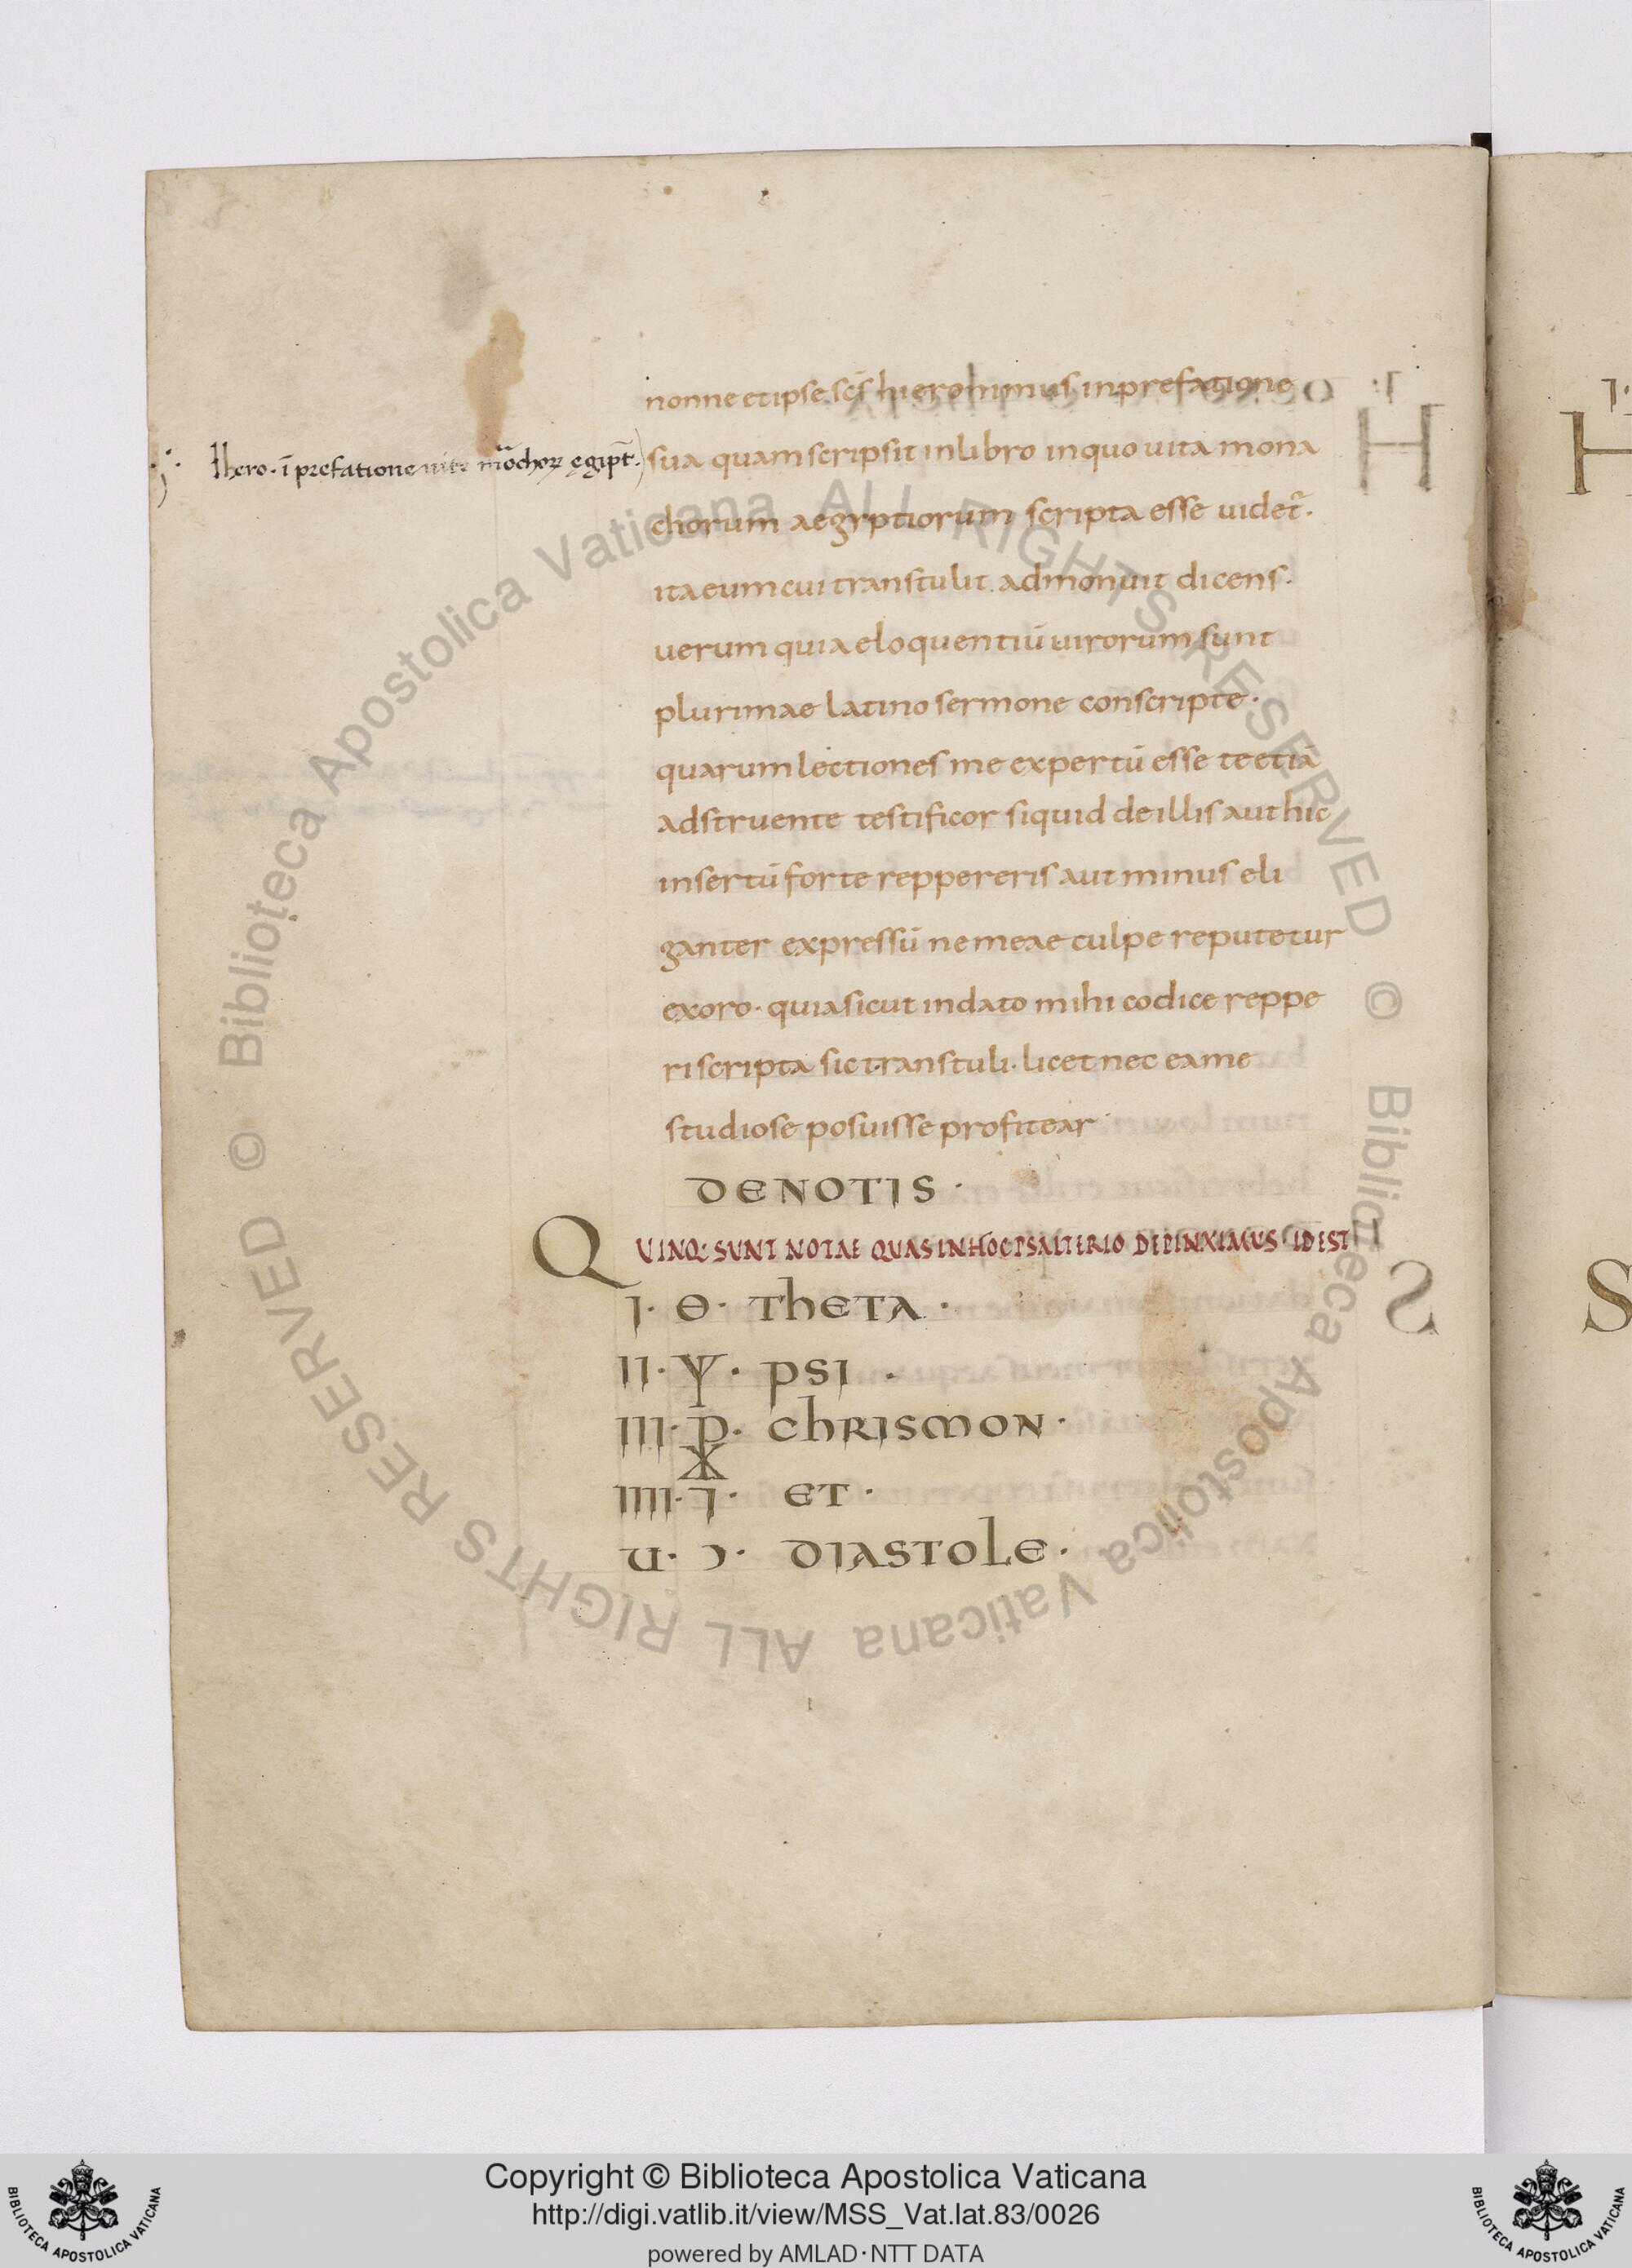 nonne et ipse scs hieronimus in prefatione
Hero· ī prefatione uite mōchoꝝ ęgipt̄·
sua quam scripsit in libro in quo uita mona
chorum aegyptiorum scripta esse uidet̄·
ita eum cui transtulit admonuit dicens·
uerum quia eloquentiū uirorum sunt
plurimae latino sermone conscripte·
quarum lectiones me expertū esse te etiā
adstruente testificor siquid de illis aut hic
insertū forte reppereris aut minus eli
ganter expressū ne meae culpe reputetur
exoro· quia sicut in dato mihi codice reppe
ri scripta sic transtuli· licet nec ea me
studiose posuisse profitear
DE NOTIS·
QUINQ: SUNT NOTAE QUAS IN HOC PSALTERIO DEPINXIMUS ID EST
I· Θ· THETA·
II· Ψ· PSI·
III· ⳩· CHRISMON·
IIII· ⁊· ET·
U· Ɔ· DIASTOLE·
H
S
© Biblioteca Apostolica Vaticana ALL RIGHTS RESERVED © Biblioteca Apostolica Vaticana ALL RIGHTS RESERVED
Copyright © Biblioteca Apostolica Vaticana
http://digi.vatlib.it/view/MSS_Vat.lat.83/0026
powered by AMLAD·NTT DATA
BIBLIOTECA APOSTOLICA VATICANA
BIBLIOTECA APOSTOLICA VATICANA